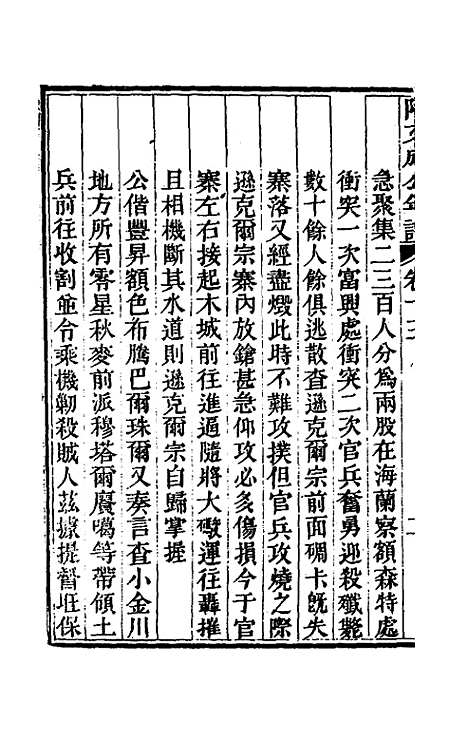 急聚集二三百人分爲兩股在海蘭察額森特處
衝突一次富興處衝突二次官兵奮勇迎殺殲斃
數十餘人餘俱逃散查遜克爾宗前面碉卡旣失
寨落又經盡燬此時不難攻撲但官兵攻燒之際
遜克爾宗寨內放鎗甚急仰攻必多傷損今于官
寨左右接起木城前往進逼隨將大礮運往轟摧
且相機斷其水道則遜克爾宗自歸掌握
公偕豐昇額色布騰巴爾珠爾又奏言查小金川
地方所有零星秋麥前派穆塔爾廣噶等帶領土
兵前往收割並令乘機勦殺賊人茲據提督王保